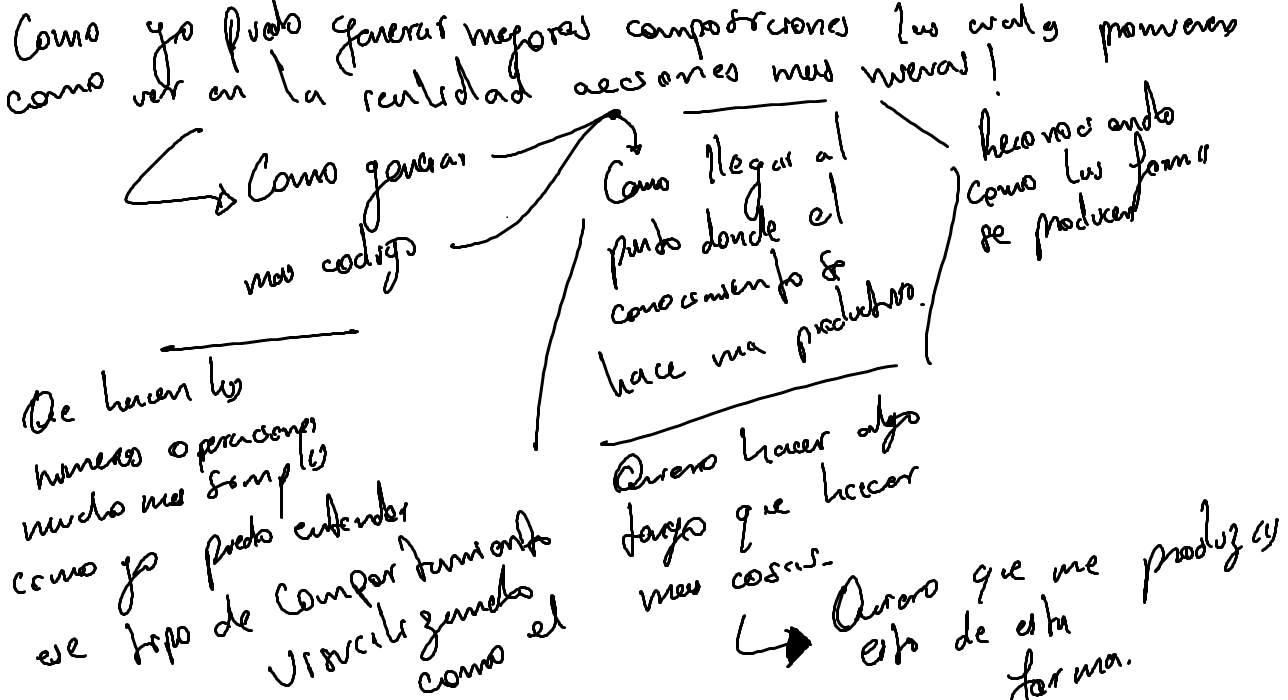 Como yo puedo generar mejores composiciones las cuales promueven
como ver en la realidad acciones mas nuevas!
Como generar
mas codigo
Como llegar al
punto donde el
conocimiento se
hace mas productivo.
Reconociendo
como las formas
se producen
Que hacen los
numeros operaciones
mucho mas simples
como yo puedo entender
ese tipo de comportamiento
visualizando
como el
Quiero hacer algo
tengo que hacer
mas cosas.
Quiero que me produzcas
esto de esta
forma.